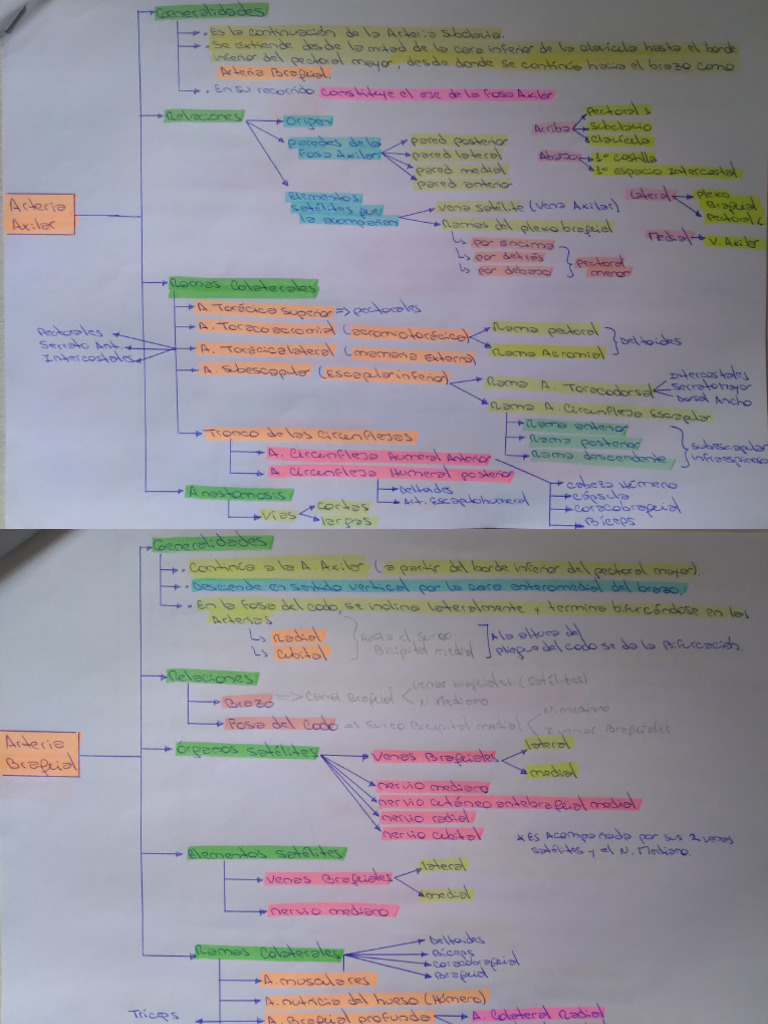 Generalidades
• Es la continuación de la Arteria Sbclavia.
• Se extiende desde la mitad de la cara inferior de la clavícula hasta el borde
inferior del pectoral mayor, desde donde se continúa hacia el brazo como
Arteria Braquial.
• En su recorrido constituye el eje de la fosa Axilar
Relaciones
origen
Arriba
pectoral s
subclavio
clavícula
Abajo
1° costilla
1° espacio Intercostal
paredes de la
fosa Axilar
pared posterior
pared lateral
pared medial
pared anterior
Lateral
plexo
Braquial
pectoral
Medial
V. Axilar
Elementos
satélites que
la acompañan
vena satélite (vena Axilar)
Ramas del plexo braquial
por encima
por detrás
por debajo
pectoral
menor
Arteria
Axilar
Ramas Colaterales
A. Torácica Superior => pectorales
A. Toracoacromial (acromiotorácica)
Rama pectoral
Rama Acromial
Deltoides
A. Torácica lateral (mamaria Externa)
Pectorales
Serrato Ant.
Intercostales
A. Subescapular (Escapular inferior)
Rama A. Toracodorsal
Intercostales
Serrato mayor
Dorsal Ancho
Rama A. Circunfleja Escapular
Rama anterior
Rama posterior
Rama descendente
subescapular
infraespinoso
Tronco de las Circunflejas
A. Circunfleja Humeral Anterior
A. Circunfleja Humeral posterior
Deltoides
Art. Escapulohumeral
cabeza Húmero
cápsula
coracobraquial
Bíceps
Anastomosis
Vías
cortas
largas
Generalidades
• Continúa a la A. Axilar (a partir del borde inferior del pectoral mayor).
• Desciende en sentido vertical por la cara anteromedial del brazo.
• En la fosa del codo, se inclina lateralmente y termina bifurcándose en las
Arterias
Radial
Cubital
surco
Bicipital medial
A la altura del
pliegue del codo se da la Bifurcación.
Relaciones
Brazo => Canal Braquial
venas braquiales (satélites)
N. Mediano
Fosa del Codo => Surco Bicipital medial
N. mediano
2 venas Braquiales
Arteria
Braquial
Órganos satélites
Venas Braquiales
lateral
medial
nervio mediano
nervio cutáneo antebraquial medial
nervio radial
nervio cubital
* Es Acompañada por sus 2 venas
satélites y el N. Mediano.
Elementos Satélites
Venas Braquiales
lateral
medial
nervio mediano
Ramas Colaterales
Deltoides
Bíceps
Coracobraquial
Braquial
A. musculares
A. nutricia del hueso (Húmero)
Tríceps
A. Braquial profunda
A. Colateral Radial